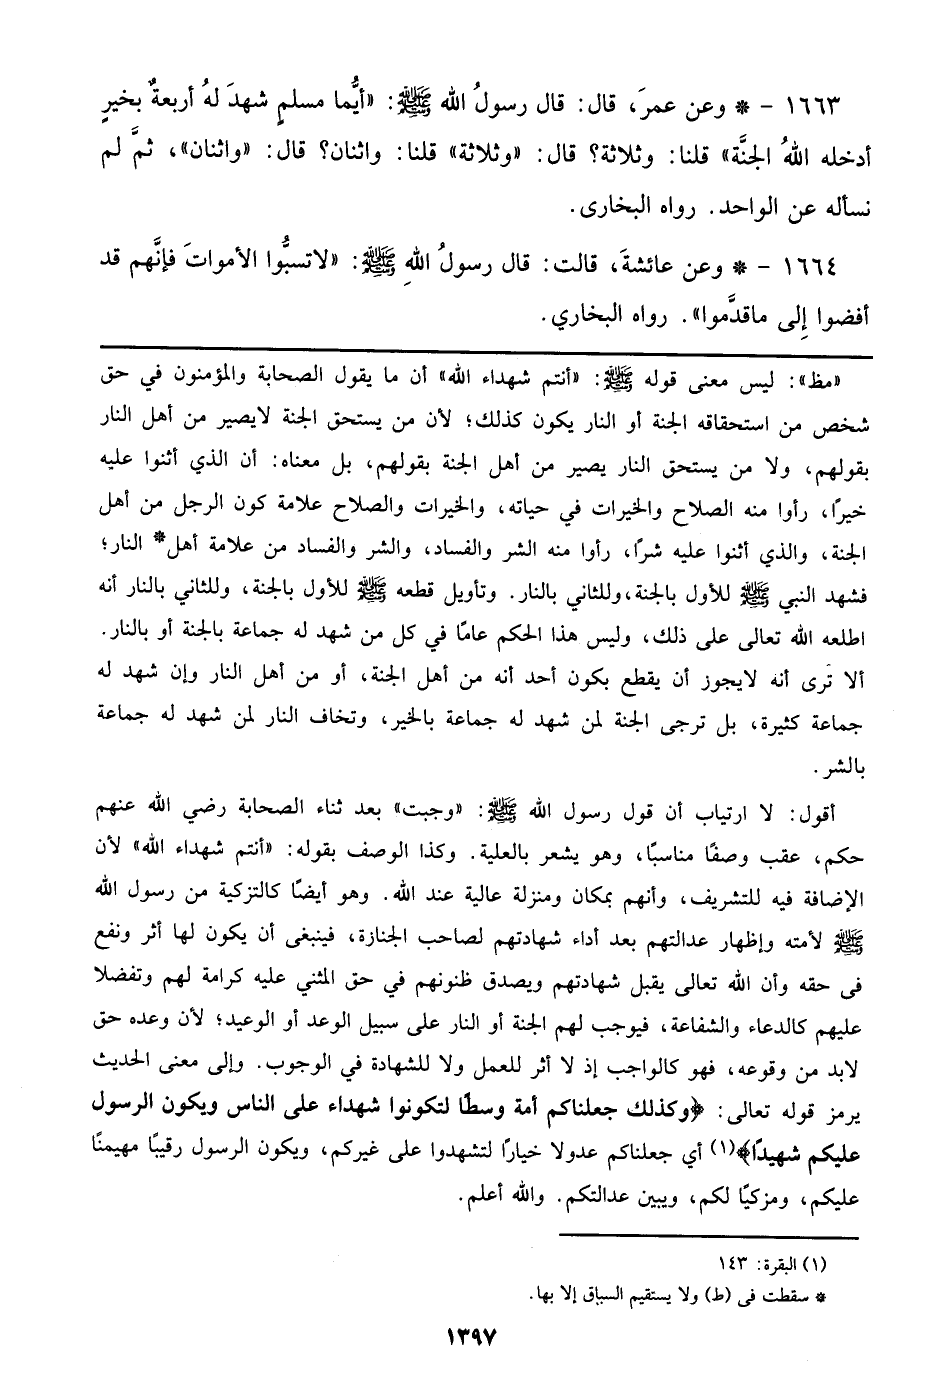 ١٦٦٣ – * وعن عمرَ، قال: قال رسولُ الله ﷺ: «أيُّما مسلمٍ شهدَ لهُ أربعةٌ بخيرٍ
أدخله اللهُ الجنَّة» قلنا: وثلاثة؟ قال: «وثلاثة» قلنا: واثنان؟ قال: «واثنان»، ثمَّ لم
نسأله عن الواحد. رواه البخارى.
١٦٦٤ – * وعن عائشةَ، قالت: قال رسولُ اللهِ ﷺ: «لاتسبُّوا الأمواتَ فإنَّهم قد
أفضوا إِلى ماقدَّموا». رواه البخاري.
«مظ»: ليس معنى قوله ﷺ: «أنتم شهداء الله» أن ما يقول الصحابة والمؤمنون في حق
شخص من استحقاقه الجنة أو النار يكون كذلك؛ لأن من يستحق الجنة لايصير من أهل النار
بقولهم، ولا من يستحق النار يصير من أهل الجنة بقولهم، بل معناه: أن الذي أثنوا عليه
خيرًا، رأوا منه الصلاح والخيرات في حياته، والخيرات والصلاح علامة كون الرجل من أهل
الجنة، والذي أثنوا عليه شرًا، رأوا منه الشر والفساد، والشر والفساد من علامة أهل* النار؛
فشهد النبي ﷺ للأول بالجنة،وللثاني بالنار. وتأويل قطعه ﷺ للأول بالجنة، وللثاني بالنار أنه
اطلعه الله تعالى على ذلك، وليس هذا الحكم عامًا في كل من شهد له جماعة بالجنة أو بالنار.
ألا تَرى أنه لايجوز أن يقطع بكون أحد أنه من أهل الجنة، أو من أهل النار وإن شهد له
جماعة كثيرة، بل ترجى الجنة لمن شهد له جماعة بالخير، وتخاف النار لمن شهد له جماعة
بالشر.
أقول: لا ارتياب أن قول رسول الله ﷺ: «وجبت» بعد ثناء الصحابة رضي الله عنهم
حكم، عقب وصفًا مناسبًا، وهو يشعر بالعلية. وكذا الوصف بقوله: «أنتم شهداء الله» لأن
الإضافة فيه للتشريف، وأنهم بمكان ومنزلة عالية عند الله. وهو أيضًا كالتزكية من رسول الله
ﷺ لأمته وإظهار عدالتهم بعد أداء شهادتهم لصاحب الجنازة، فينبغى أن يكون لها أثر ونفع
فى حقه وأن الله تعالى يقبل شهادتهم ويصدق ظنونهم في حق المثني عليه كرامة لهم وتفضلا
عليهم كالدعاء والشفاعة، فيوجب لهم الجنة أو النار على سبيل الوعد أو الوعيد؛ لأن وعده حق
لابد من وقوعه، فهو كالواجب إذ لا أثر للعمل ولا للشهادة في الوجوب. وإلى معنى الحديث
يرمز قوله تعالى: ﴿وكذلك جعلناكم أمة وسطًا لتكونوا شهداء على الناس ويكون الرسول
عليكم شهيدًا﴾(١) أي جعلناكم عدولا خيارًا لتشهدوا على غيركم، ويكون الرسول رقيبًا مهيمنًا
عليكم، ومزكيًا لكم، ويبين عدالتكم. والله أعلم.
(١) البقرة: ١٤٣
* سقطت فى (ط) ولا يستقيم السباق إلا بها.
١٣٩٧